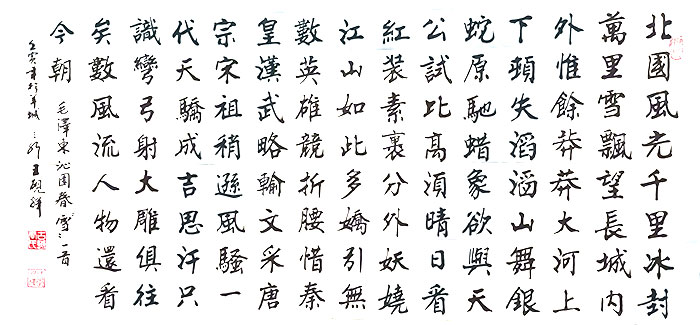 北國風光千里冰封
萬里雪飄望長城內
外惟餘莽莽大河上
下頓失滔滔山舞銀
蛇原馳蜡象欲與天
公試比高須晴日看
紅装素裹分外妖嬈
江山如此多嬌引無
數英雄競折腰惜秦
皇漢武略輸文采唐
宗宋祖稍遜風騷一
代天驕成吉思汗只
識彎弓射大雕俱往
矣數風流人物還看
今朝
毛澤東沁園春雪之一首
壬寅年於羊城